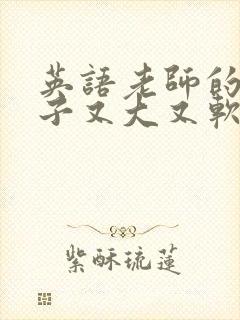 英語老師的
子又大又軟
紫酥琉蓮